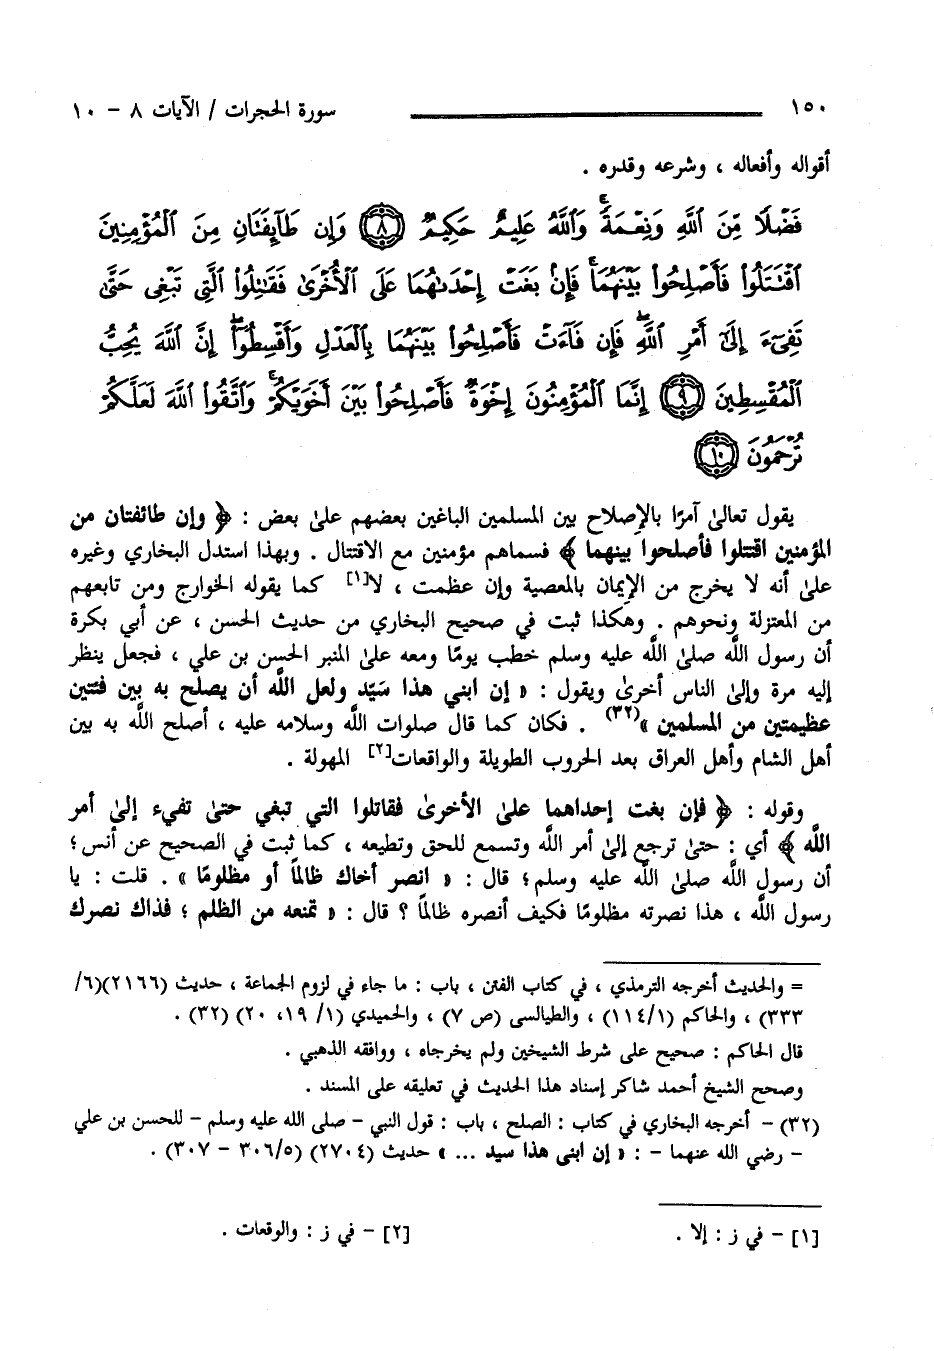 ١٥٠ سورة الحجرات / الآيات ٨ - ١٠
أقواله وأفعاله ، وشرعه وقدره .
فَضْلًا مِّنَ ٱللَّهِ وَنِعْمَةً ۚ وَٱللَّهُ عَلِيمٌ حَكِيمٌ ٨ وَإِن طَآئِفَتَانِ مِنَ ٱلْمُؤْمِنِينَ
ٱقْتَتَلُوا۟ فَأَصْلِحُوا۟ بَيْنَهُمَا ۖ فَإِنۢ بَغَتْ إِحْدَىٰهُمَا عَلَى ٱلْأُخْرَىٰ فَقَٰتِلُوا۟ ٱلَّتِى تَبْغِى حَتَّىٰ
تَفِىٓءَ إِلَىٰٓ أَمْرِ ٱللَّهِ ۚ فَإِن فَآءَتْ فَأَصْلِحُوا۟ بَيْنَهُمَا بِٱلْعَدْلِ وَأَقْسِطُوٓا۟ ۖ إِنَّ ٱللَّهَ يُحِبُّ
ٱلْمُقْسِطِينَ ٩ إِنَّمَا ٱلْمُؤْمِنُونَ إِخْوَةٌ فَأَصْلِحُوا۟ بَيْنَ أَخَوَيْكُمْ ۚ وَٱتَّقُوا۟ ٱللَّهَ لَعَلَّكُمْ
تُرْحَمُونَ ١٠
يقول تعالىٰ آمرًا بالإصلاح بين المسلمين الباغين بعضهم علىٰ بعض : ﴿ وإن طائفتان من
المؤمنين اقتتلوا فأصلحوا بينهما ﴾ فسماهم مؤمنين مع الاقتتال . وبهذا استدل البخاري وغيره
علىٰ أنه لا يخرج من الإيمان بالمعصية وإن عظمت ، لا[١] كما يقوله الخوارج ومن تابعهم
من المعتزلة ونحوهم . وهكذا ثبت في صحيح البخاري من حديث الحسن ، عن أبي بكرة
أن رسول اللَّه صلىٰ اللَّه عليه وسلم خطب يومًا ومعه علىٰ المنبر الحسن بن علي ، فجعل ينظر
إليه مرة وإلىٰ الناس أخرىٰ ويقول : « إن ابني هذا سَيّد ولعل اللَّه أن يصلح به بين فئتين
عظيمتين من المسلمين »(٣٢) . فكان كما قال صلوات اللَّه وسلامه عليه ، أصلح اللَّه به بين
أهل الشام وأهل العراق بعد الحروب الطويلة والواقعات[٢] المهولة .
وقوله : ﴿ فإن بغت إحداهما علىٰ الأخرىٰ فقاتلوا التي تبغي حتىٰ تفيء إلىٰ أمر
اللَّه ﴾ أي : حتىٰ ترجع إلىٰ أمر اللَّه وتسمع للحق وتطيعه ، كما ثبت في الصحيح عن أنس ؛
أن رسول اللَّه صلىٰ اللَّه عليه وسلم؛ قال : « انصر أخاك ظالماً أو مظلومًا » . قلت : يا
رسول اللَّه ، هذا نصرته مظلومًا فكيف أنصره ظالماً ؟ قال : « تمنعه من الظلم ؛ فذاك نصرك
= والحديث أخرجه الترمذي ، في كتاب الفتن ، باب : ما جاء في لزوم الجماعة ، حديث (٢١٦٦)(٦/
٣٣٣) ، والحاكم (١١٤/١) ، والطيالسى (ص ٧) ، والحميدي (١/ ١٩، ٢٠) (٣٢) .
قال الحاكم : صحيح على شرط الشيخين ولم يخرجاه ، ووافقه الذهبي .
وصحح الشيخ أحمد شاكر إسناد هذا الحديث في تعليقه على المسند .
(٣٢) - أخرجه البخاري في كتاب : الصلح ، باب : قول النبي - صلى الله عليه وسلم - للحسن بن علي
- رضي الله عنهما - : « إن ابنى هذا سيد ... » حديث (٢٧٠٤) (٣٠٦/٥ - ٣٠٧) .
[١] - في ز : إلا . [٢] - في ز : والوقعات .